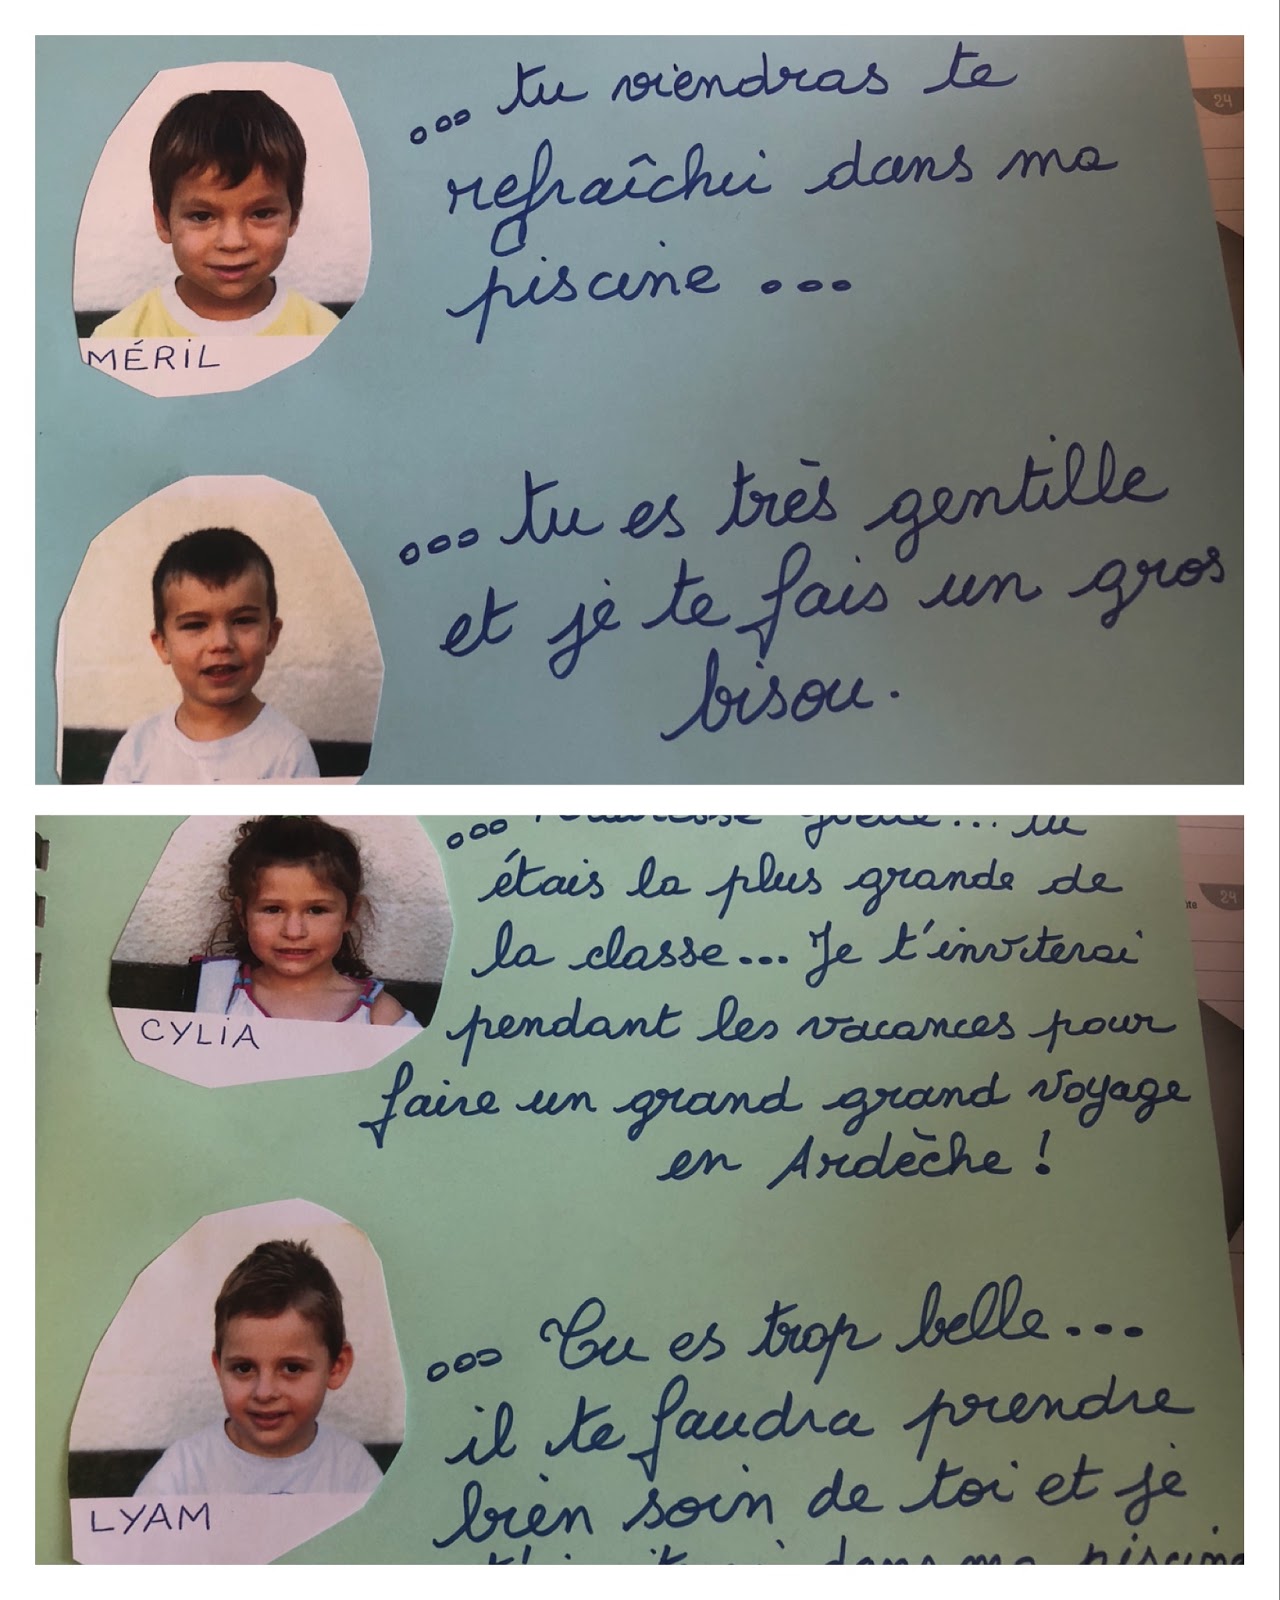 ... tu viendras te
refraîchir dans ma
piscine ...
MÉRIL
24
... tu es très gentille
et je te fais un gros
bisou.
... tu
étais la plus grande de
24
la classe... Je t'inviterai
pendant les vacances pour
CYLIA
faire un grand grand voyage
en Ardèche !
... Tu es trop belle...
il te faudra prendre
bien soin de toi et je
LYAM
t'inviterai dans ma piscine